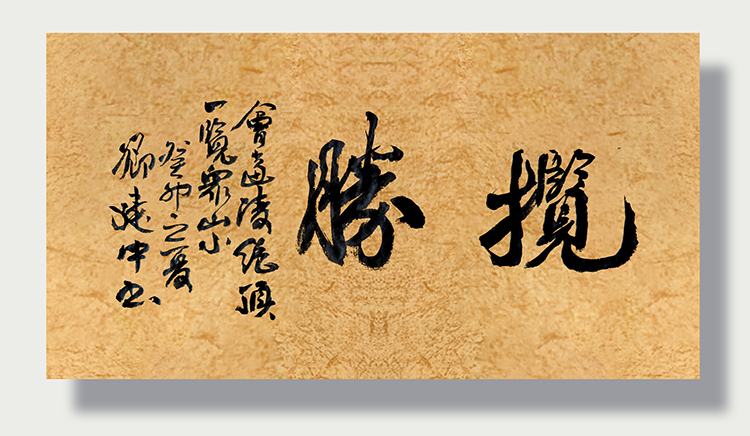 攬勝
會當凌絕頂
一覽眾山小
癸卯之夏
中书